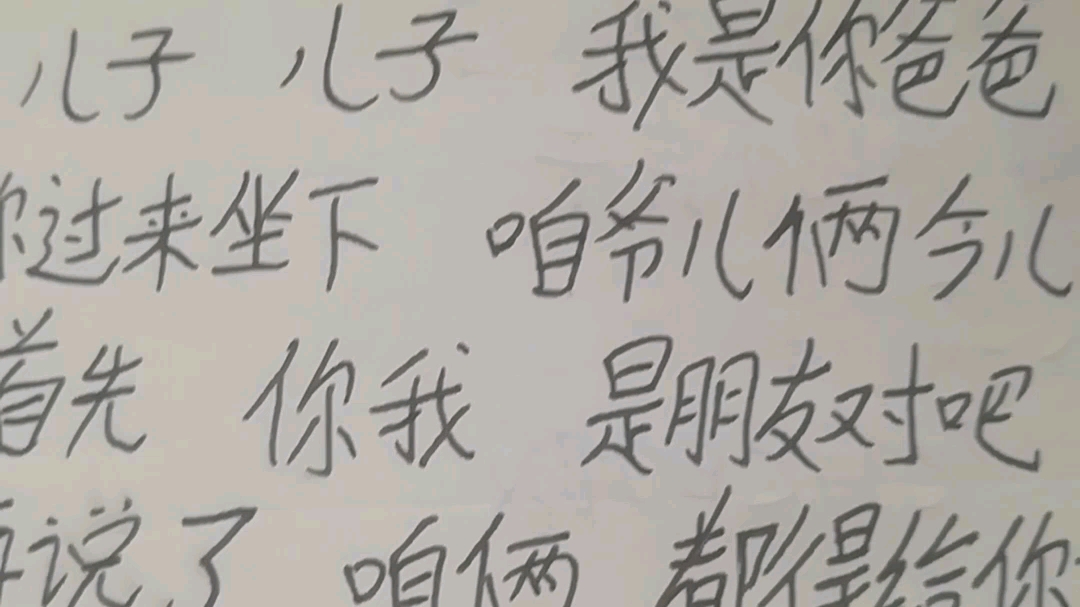 儿子 儿子 我是你爸爸
你过来坐下 咱爷儿俩今儿
首先 你我 是朋友对吧
再说了 咱俩 都得给你